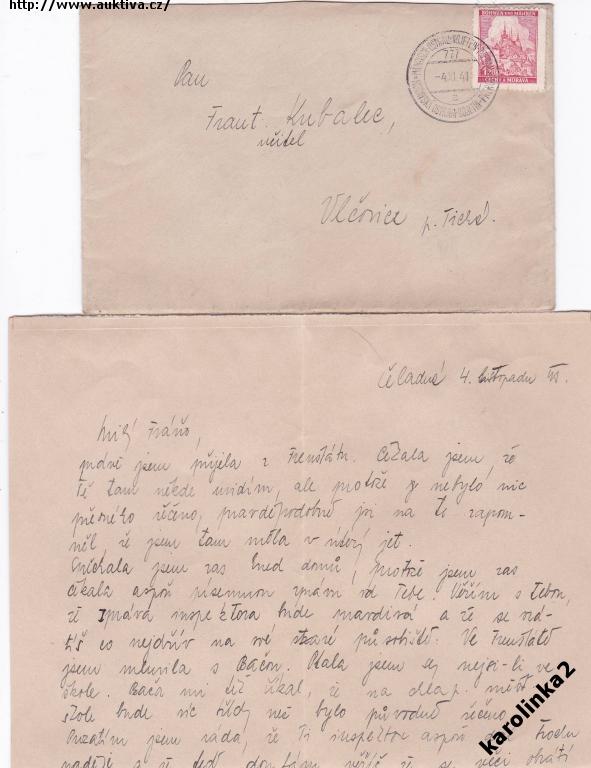 http://www.auktiva.cz/
BÖHMEN UND MÄHREN
ČECHY A MORAVA
-4.XI.41-
Pan
Frant. Kubalec,
učitel
Vlčovice p. Tichá.
Čeladná 4. listopadu
Milý Fráňo,
právě jsem přijela z Frenštátu. Čekala jsem, že
Tě tam někde uvidím, ale protože nebylo nic
přesného řečeno, pravděpodobně jsi na to zapom-
něl, že jsem tam měla v úterý jet.
jsem zas hned domů, protože jsem zas
čekala aspoň písemnou zprávu od Tebe. Věřím s Tebou,
že zpráva inspektora bude pravdivá a že se vrá-
tíš co nejdřív na své staré působiště. Ve Frenštátě
jsem mluvila s Bačou. Ptala jsem se, nejsi-li ve
škole. Bača mi též říkal, že na
škole bude víc třídy než bylo původně řečeno.
Prozatím jsem ráda, že Ti inspektor aspoň trochu
naděje a že teď doufám se věci obrátí
karolinka2